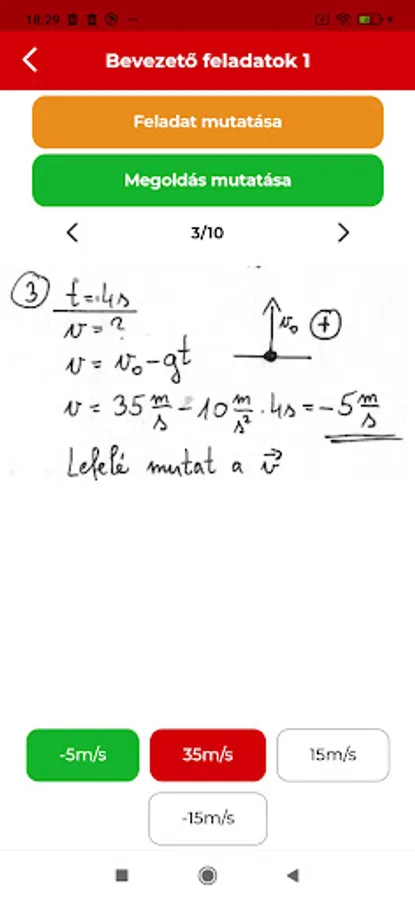 18:29
Bevezető feladatok 1
Feladat mutatása
Megoldás mutatása
3/10
3 t=4s
v=?
v = v₀-gt
v₀ +
v = 35 m/s - 10 m/s² · 4s = -5 m/s
Lefelé mutat a v⃗
-5m/s 35m/s 15m/s
-15m/s